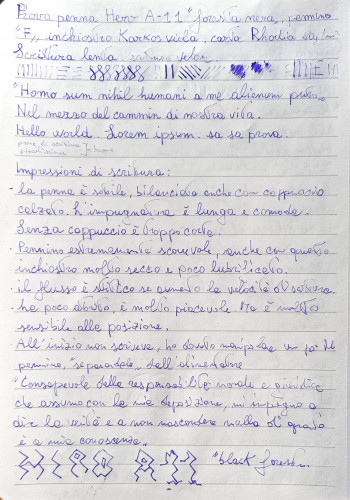 Prova penna Hero A-11 "foresta nera", pennino
"F", inchiostro Karkos viola, carta Rhodia
Scrittura lenta scrittura veloce
"Homo sum nihil humani a me alienum puto"
Nel mezzo del cammin di nostra vita.
Hello world. Lorem ipsum. sa sa prova.
Impressioni di scrittura:
- La penna è sottile, bilanciata anche con cappuccio
calzato. L'impugnatura è lunga e comoda.
Senza cappuccio è troppo corta.
- Pennino estremamente scorrevole, anche con questo
inchiostro molto secco e poco lubrificato.
- il flusso è stitico se aumento la velocità di scrittura.
- ha poco attrito, è molto piacevole. Ma è molto
sensibile alla posizione.
All'inizio non scriveva, ho dovuto manipolare un po' il
pennino, "separandolo" dall'alimentatore
"Consapevole della responsabilità morale e giuridica
che assumo con la mia deposizione, mi impegno a
dire la verità e a non nascondere nulla di quanto
è a mia conoscenza."
"black forest"